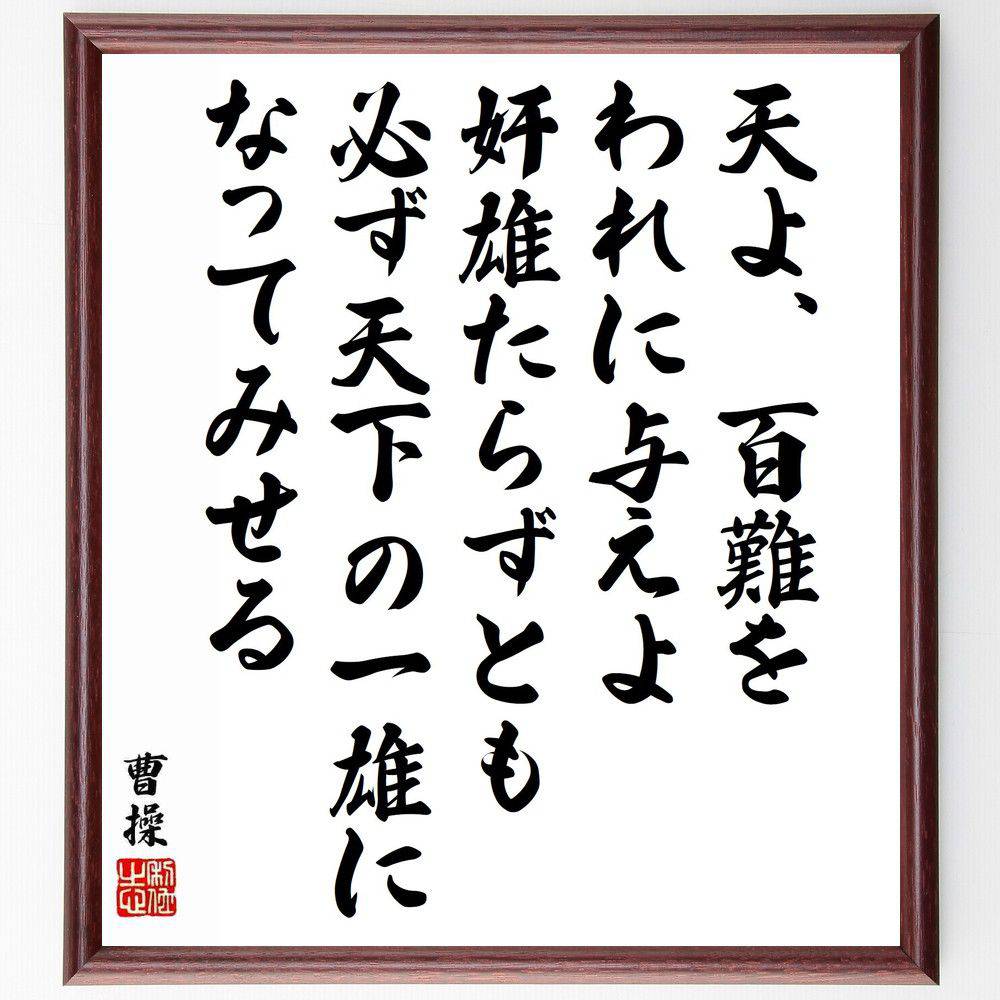 天よ、百難を
われに与えよ
奸雄たらずとも
必ず天下の一雄に
なってみせる
曹操